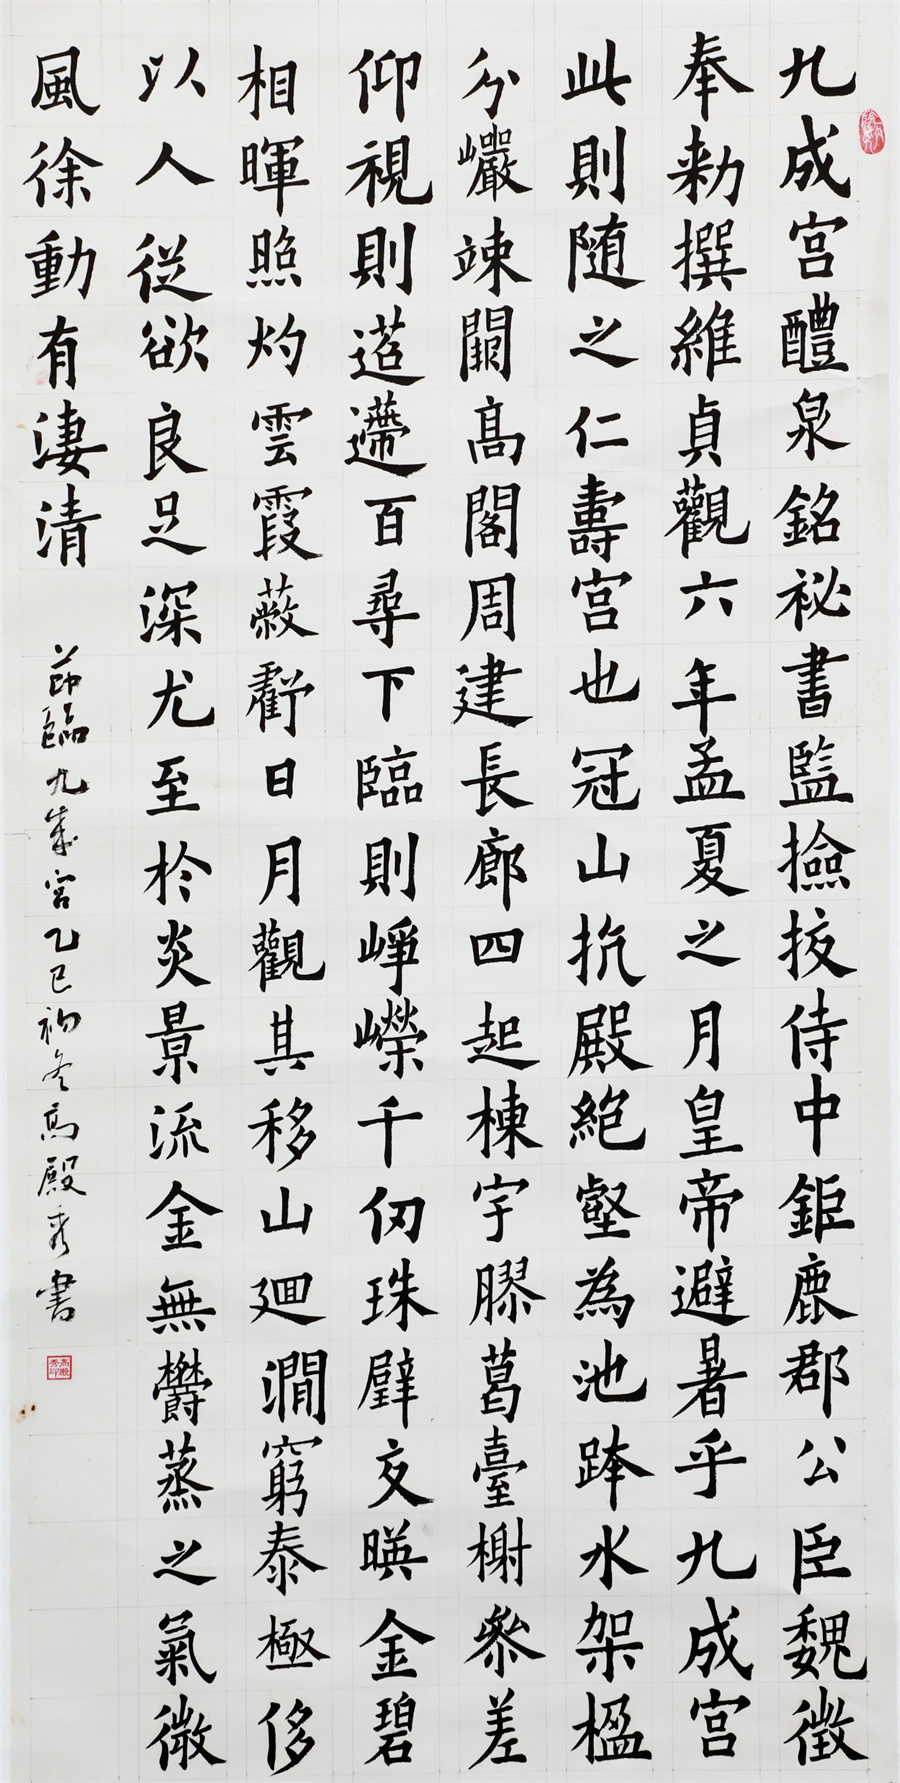 九成宫醴泉銘祕書監撿挍侍中鉅鹿郡公臣魏徵
奉勑撰維貞觀六年孟夏之月皇帝避暑乎九成宫
此則随之仁壽宫也冠山抗殿絶壑為池跨水架楹
分巖竦闕髙閣周建長廊四起棟宇膠葛臺榭參差
仰視則迢遰百尋下臨則崢嶸千仞珠璧交暎金碧
相暉照灼雲霞蔽虧日月觀其移山廻澗窮泰極侈
以人從欲良足深尤至於炎景流金無欝蒸之氣微
風徐動有淒清
節臨九成宫乙巳初冬高殿秀書
高殿秀印